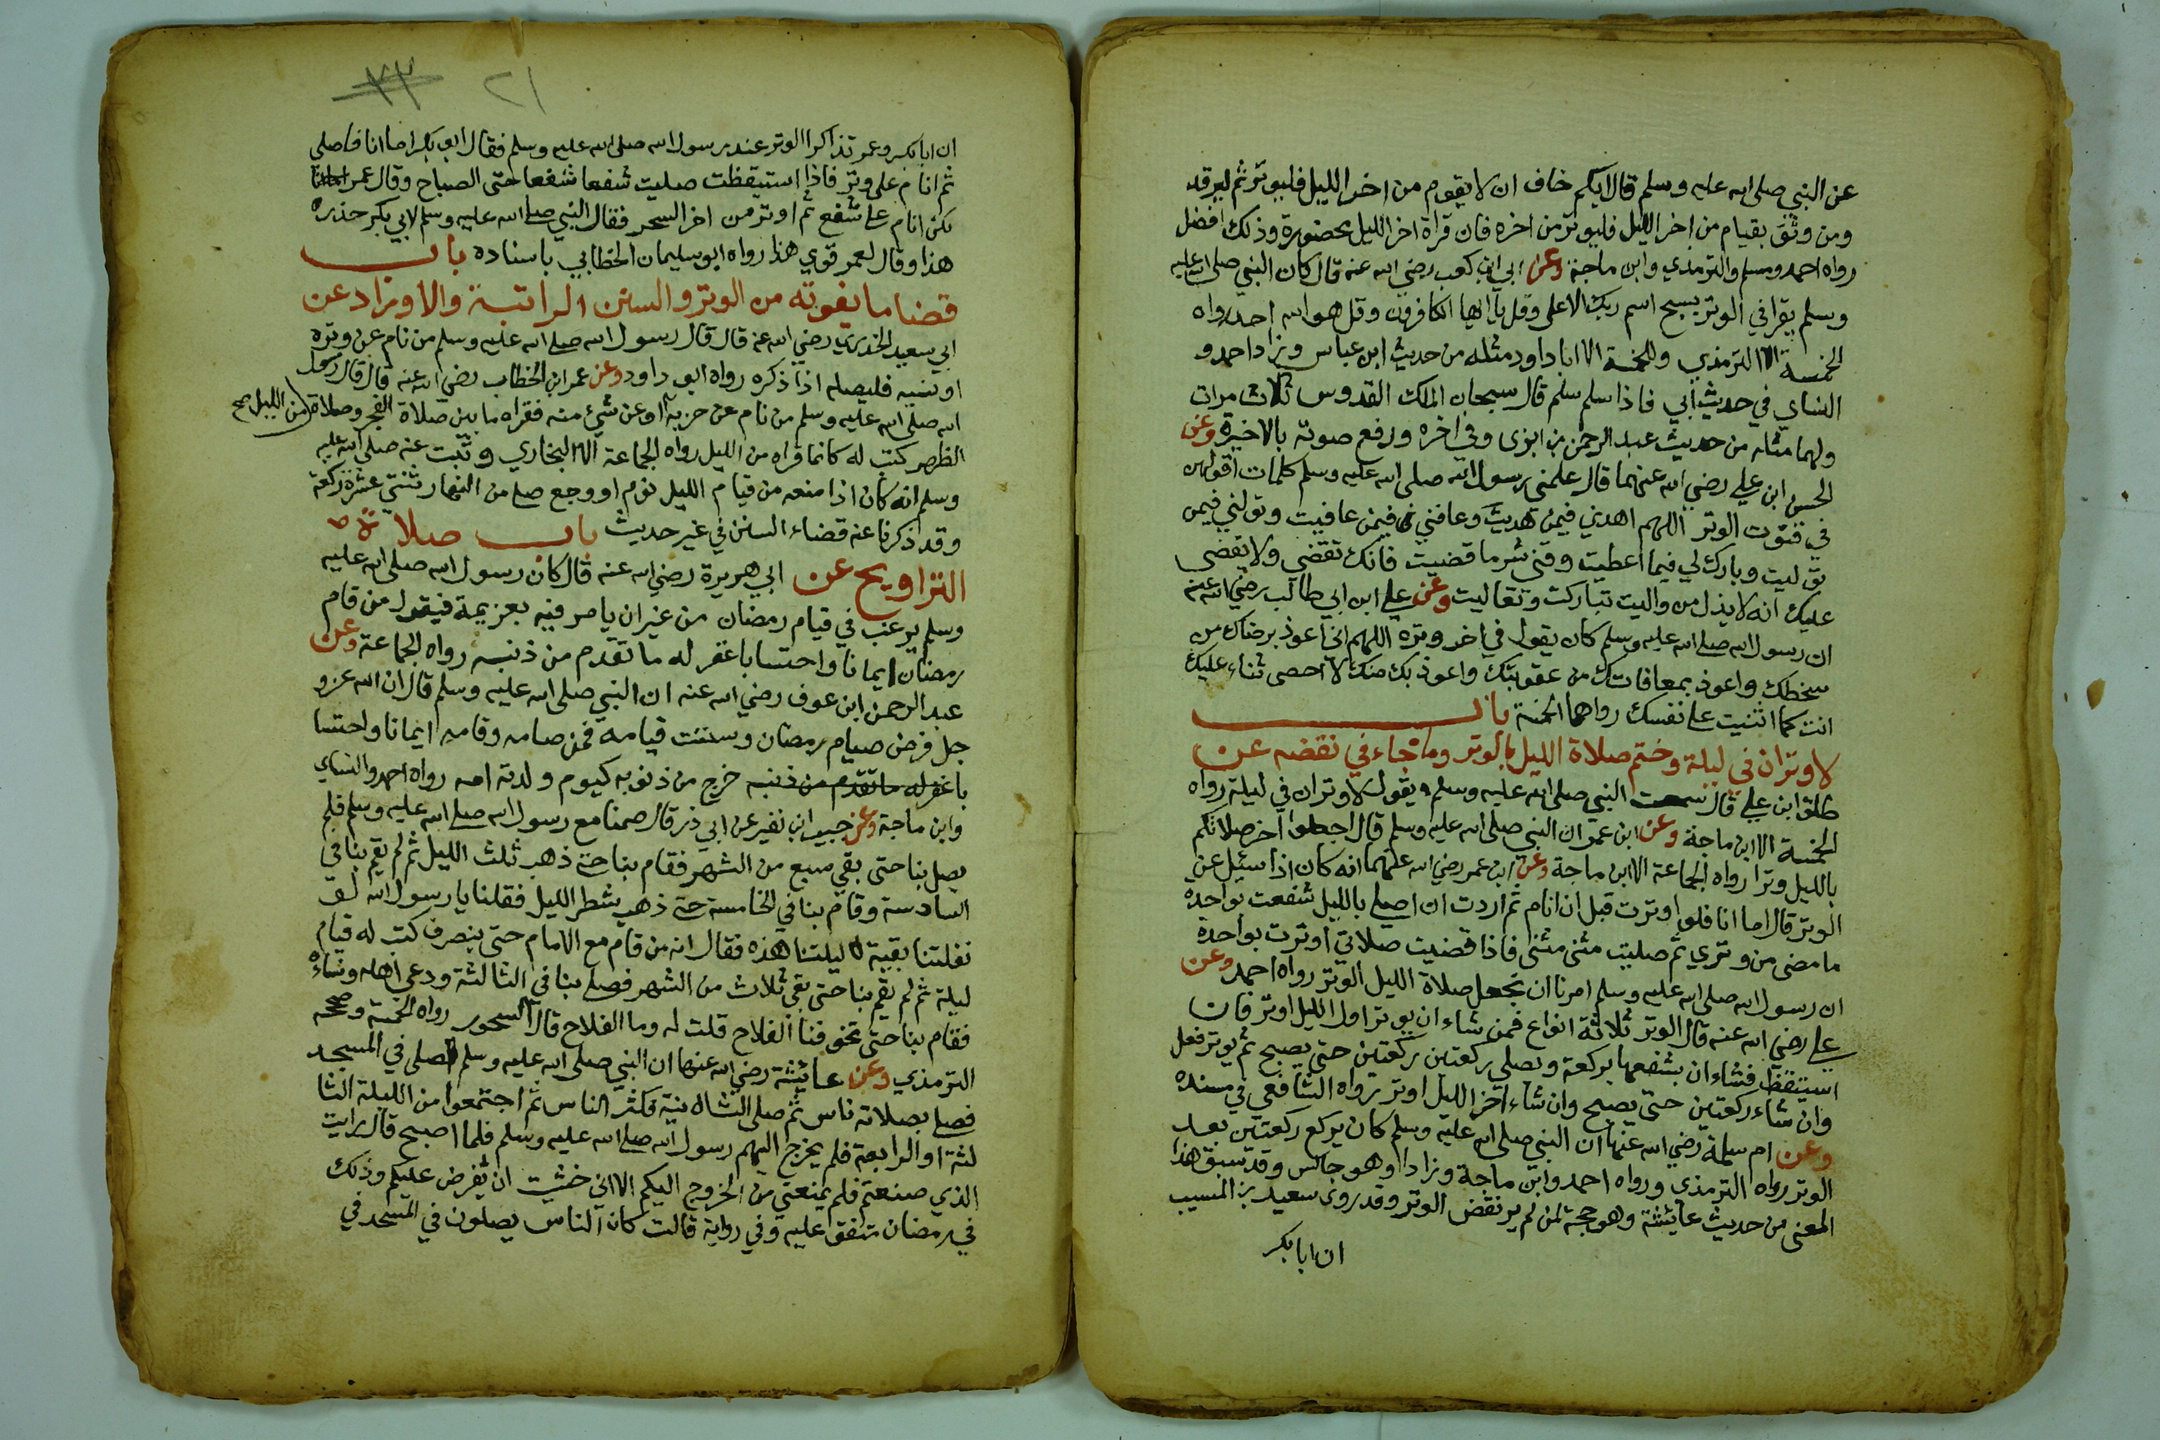 عن النبي صلى الله عليه وسلم قال ايكم خاف ان لا يقوم من اخر الليل فليوتر ثم ليرقد
ومن وثق بقيام من اخر الليل فليوتر من اخره فان قراة اخر الليل محضورة وذلك افضل
رواه احمد ومسلم والترمذي وابن ماجة وعن ابي ابن كعب رضي الله عنه قال كان النبي صلى الله عليه
وسلم يقرا في الوتر بسبح اسم ربك الاعلى وقل يا ايها الكافرون وقل هو الله احد رواه
الخمسة الا الترمذي وللخمسة الا ابا داود مثله من حديث ابن عباس وزاد احمد و
النساي في حديث ابي فاذا سلم قال سبحان الملك القدوس ثلاث مرات
ولهما مثله من حديث عبد الرحمن بن ابزى وفي اخره ورفع صوته بالاخيرة وعن
الحسن ابن علي رضي الله عنهما قال علمني رسول الله صلى الله عليه وسلم كلمات اقولهن
في قنوت الوتر اللهم اهدني فيمن هديت وعافني فيمن عافيت وتولني فيمن
توليت وبارك لي فيما اعطيت وقني شر ما قضيت فانك تقضي ولا يقضى
عليك انه لا يذل من واليت تباركت وتعاليت وعن علي ابن ابي طالب رضي الله عنه
ان رسول الله صلى الله عليه وسلم كان يقول في اخر وتره اللهم اني اعوذ برضاك من
سخطك واعوذ بمعافاتك من عقوبتك واعوذ بك منك لا احصى ثناء عليك
انت كما اثنيت على نفسك رواهما الخمسة باب
لا وتران في ليلة وختم صلاة الليل بالوتر وما جاء في نقضه عن
طلق ابن علي قال سمعت النبي صلى الله عليه وسلم يقول لا وتران في ليلة رواه
الخمسة الا ابن ماجة وعن ابن عمر ان النبي صلى الله عليه وسلم قال اجعلوا آخر صلاتكم
بالليل وترا رواه الجماعة الا ابن ماجة وعن ابن عمر رضي الله عنهما انه كان اذا سئل عن
الوتر قال اما انا فلو اوترت قبل ان انام ثم اردت ان اصلي بالليل شفعت بواحدة
ما مضى من وتري ثم صليت مثنى مثنى فاذا قضيت صلاتي اوترت بواحدة
ان رسول الله صلى الله عليه وسلم امرنا ان نجعل صلاة الليل الوتر رواه احمد وعن
علي رضي الله عنه قال الوتر ثلاثة انواع فمن شاء ان يوتر اول الليل اوتر فان
استيقظ فشاء ان يشفعها بركعة ويصلي ركعتين ركعتين حتى يصبح ثم يوتر فعل
وان شاء ركعتين حتى يصبح وان شاء اخر الليل اوتر رواه الشافعي في مسنده
وعن ام سلمة رضي الله عنها ان النبي صلى الله عليه وسلم كان يركع ركعتين بعد
الوتر رواه الترمذي ورواه احمد وابن ماجة وزادا وهو جالس وقد سبق هذا
المعنى من حديث عايشة وهو حجة لمن لم ير نقض الوتر وقد روى سعيد بن المسيب
ان ابا بكر
٢١
ان ابا بكر وعمر تذاكرا الوتر عند رسول الله صلى الله عليه وسلم فقال ابو بكر اما انا فاصلي
ثم انام على وتر فاذا استيقظت صليت شفعا شفعا حتى الصباح وقال عمر
لكن انام على شفع ثم اوتر من اخر السحر فقال النبي صلى الله عليه وسلم لابي بكر حذر
هذا وقال لعمر قوي هذا رواه ابو سليمان الخطابي باسناده باب
قضا ما يفوته من الوتر والسنن الراتبة والاوراد عن
ابي سعيد الخدري رضي الله عنه قال قال رسول الله صلى الله عليه وسلم من نام عن وتره
او نسيه فليصله اذا ذكره رواه ابو داود وعن عمر ابن الخطاب رضي الله عنه قال قال رسول
الله صلى الله عليه وسلم من نام عن حزبه او عن شيء منه فقراه ما بين صلاة الفجر وصلاة
من الليل صح
الظهر كتب له كانما قراه من الليل رواه الجماعة الا البخاري وثبت عنه صلى الله عليه
وسلم انه كان اذا منعه من قيام الليل نوم او وجع صلى من النهار ثنتي عشرة ركعة
وقد ذكرنا عنه قضاء السنن في غير حديث باب صلاة
التراويح عن ابي هريرة رضي الله عنه قال كان رسول الله صلى الله عليه
وسلم يرغب في قيام رمضان من غير ان يامر فيه بعزيمة فيقول من قام
رمضان ايمانا واحتسابا غفر له ما تقدم من ذنبه رواه الجماعة وعن
عبد الرحمن ابن عوف رضي الله عنه ان النبي صلى الله عليه وسلم قال ان الله عز و
جل فرض صيام رمضان وسننت قيامه فمن صامه وقامه ايمانا واحتسا
با غفر له ما تقدم من ذنبه خرج من ذنوبه كيوم ولدته امه رواه احمد والنساي
وابن ماجة وعن جبير ابن نفير عن ابي ذر قال صمنا مع رسول الله صلى الله عليه وسلم فلم
يصل بنا حتى بقي سبع من الشهر فقام بنا حتى ذهب ثلث الليل ثم لم يقم بنا في
السادسة وقام بنا في الخامسة حتى ذهب شطر الليل فقلنا يا رسول الله لو
نفلتنا بقية ليلتنا هذه فقال انه من قام مع الامام حتى ينصرف كتب له قيام
ليلة ثم لم يقم بنا حتى بقي ثلاث من الشهر فصلى بنا في الثالثة ودعى اهله ونساءه
فقام بنا حتى تخوفنا الفلاح قلت له وما الفلاح قال السحور رواه الخمسة وصححه
الترمذي وعن عايشة رضي الله عنها ان النبي صلى الله عليه وسلم صلى في المسجد
فصلى بصلاته ناس ثم صلى الثانية فكثر الناس ثم اجتمعوا من الليلة الثا
لثة او الرابعة فلم يخرج اليهم رسول الله صلى الله عليه وسلم فلما اصبح قال رايت
الذي صنعتم فلم يمنعني من الخروج اليكم الا اني خشيت ان تفرض عليكم وذلك
في رمضان متفق عليه وفي رواية قالت كان الناس يصلون في المسجد في